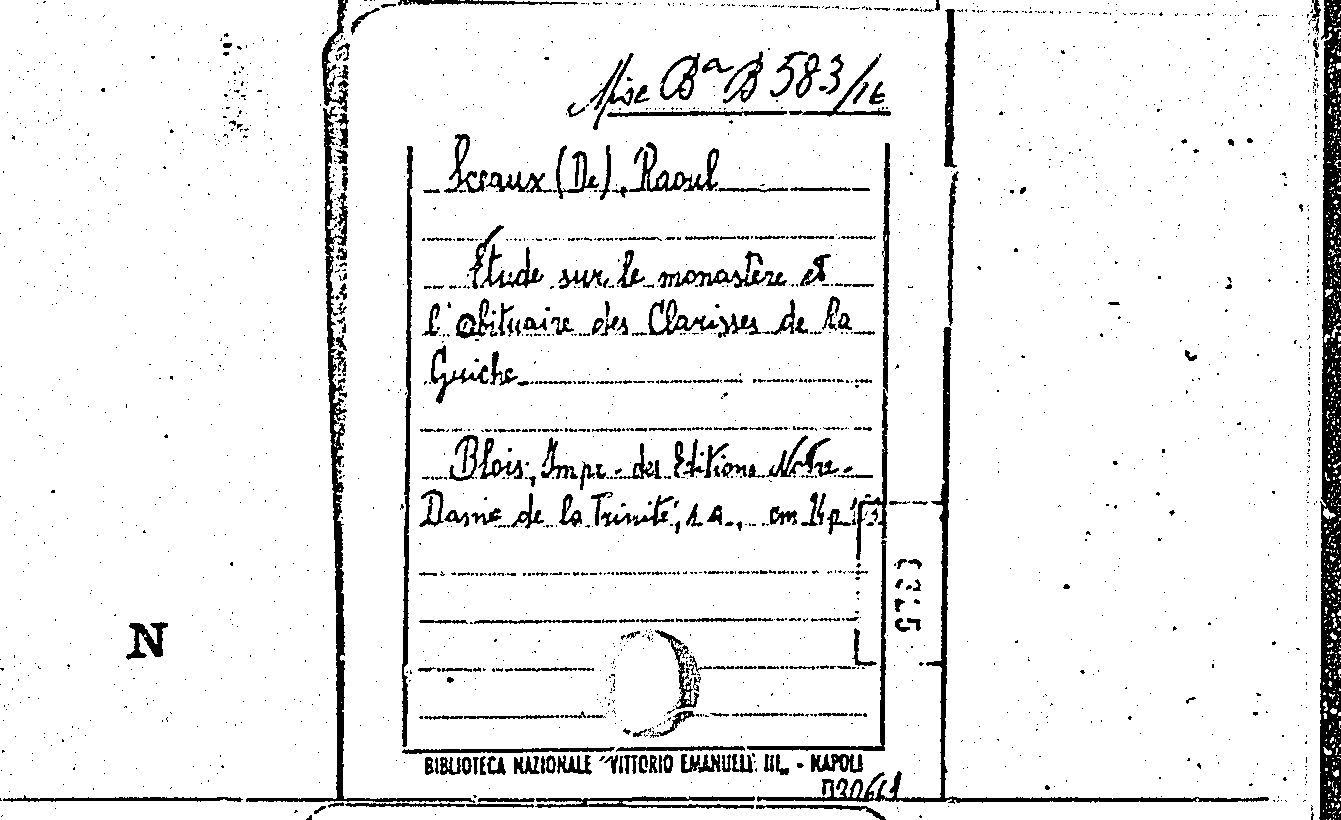 Misc Bᵃ B 583/16
Sceaux (De), Raoul
Étude sur le monastère et
l'obituaire des Clarisses de la
Guiche
Blois, Impr. des Editions Notre-
Dame de la Trinité, s.a., cm 14 p
N
BIBLIOTECA NAZIONALE "VITTORIO EMANUELE III" - NAPOLI